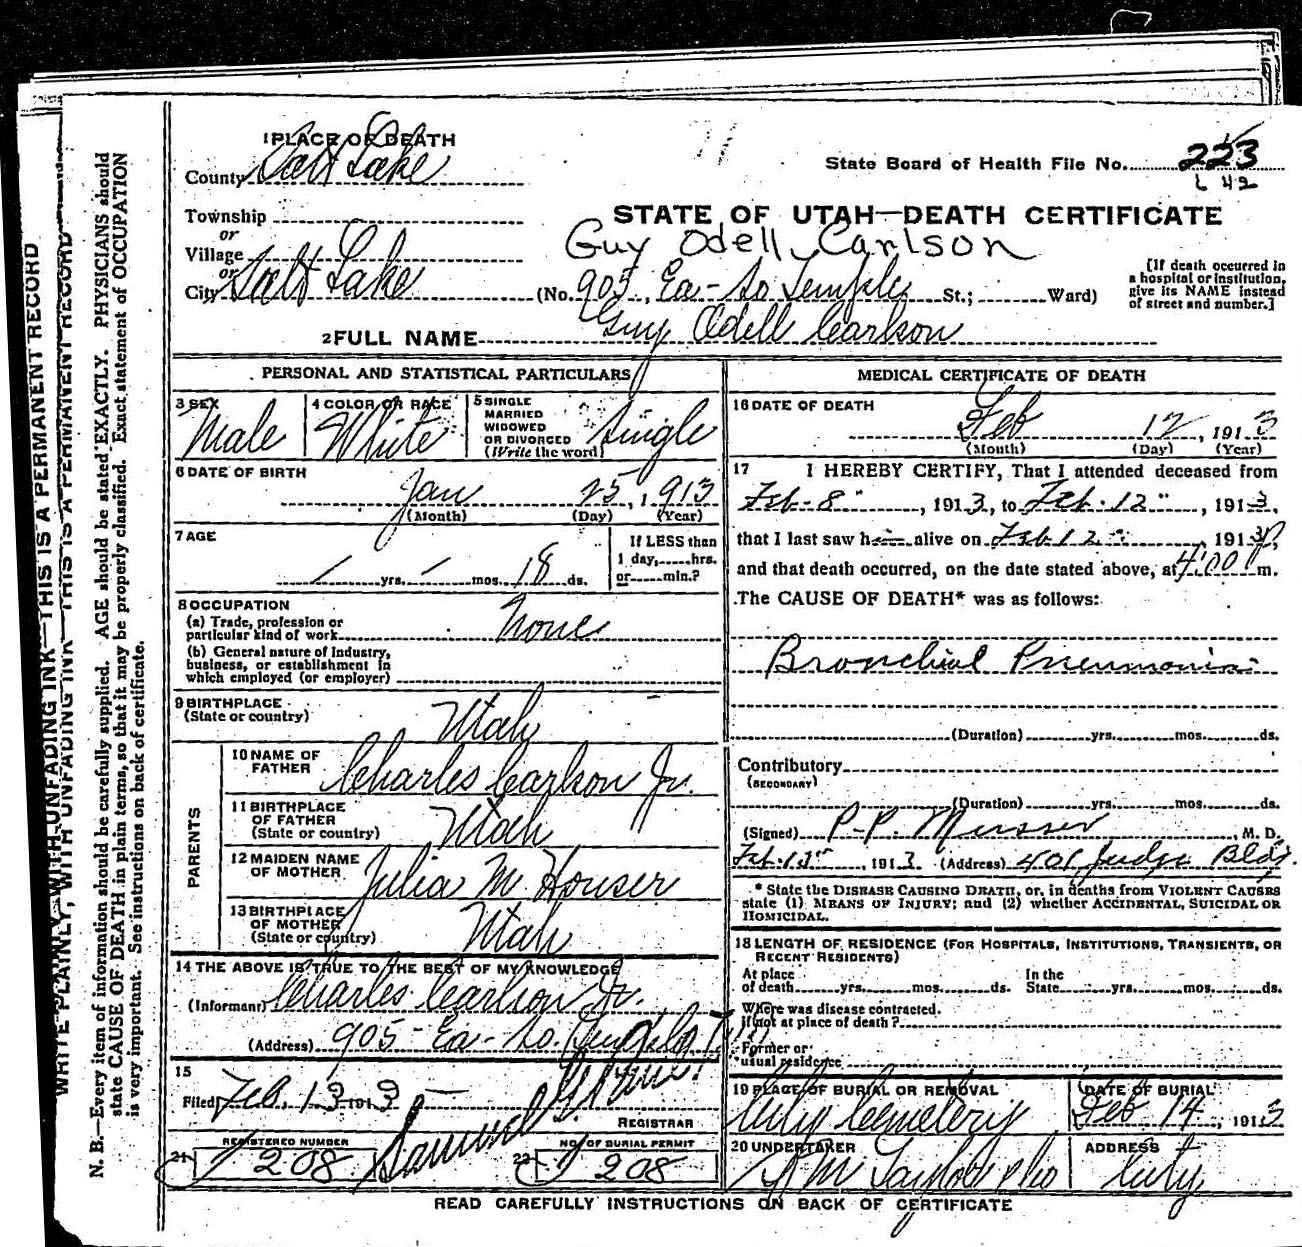 1 PLACE OF DEATH
County Salt Lake
State Board of Health File No. 223
642
Township
or
Village
or
City Salt Lake
STATE OF UTAH—DEATH CERTIFICATE
Guy Odell Carlson
(No. 905, Ea- So Temple St.; Ward)
[If death occurred in
a hospital or institution,
give its NAME instead
of street and number.]
2 FULL NAME Guy Odell Carlson
PERSONAL AND STATISTICAL PARTICULARS
3 SEX
Male
4 COLOR OR RACE
White
5 SINGLE
MARRIED
WIDOWED
OR DIVORCED
(Write the word)
Single
6 DATE OF BIRTH
Jan 25, 1913
(Month) (Day) (Year)
7 AGE
/ yrs. / mos. 18 ds.
If LESS than
1 day, hrs.
or min.?
8 OCCUPATION
(a) Trade, profession or
particular kind of work None
(b) General nature of industry,
business, or establishment in
which employed (or employer)
9 BIRTHPLACE
(State or country)
Utah
PARENTS
10 NAME OF
FATHER
Charles Carlson Jr.
11 BIRTHPLACE
OF FATHER
(State or country)
Utah
12 MAIDEN NAME
OF MOTHER
Julia M Houser
13 BIRTHPLACE
OF MOTHER
(State or country)
Utah
14 THE ABOVE IS TRUE TO THE BEST OF MY KNOWLEDGE
(Informant) Charles Carlson Jr.
(Address) 905- Ea- So. Temple
15
Filed Feb. 13 1913
Samuel
REGISTRAR
REGISTERED NUMBER
21 208
NO. OF BURIAL PERMIT
22 208
MEDICAL CERTIFICATE OF DEATH
16 DATE OF DEATH
Feb 12, 1913
(Month) (Day) (Year)
17 I HEREBY CERTIFY, That I attended deceased from
Feb-8", 1913, to Feb-12", 1913,
that I last saw him alive on Feb 12", 1913,
and that death occurred, on the date stated above, at 4:00 P m.
The CAUSE OF DEATH* was as follows:
Bronchial Pneumonia
(Duration) yrs. mos. ds.
Contributory
(SECONDARY)
(Duration) yrs. mos. ds.
(Signed) P. P. Musser, M. D.
Feb. 13", 1913 (Address) 401 Judge Bldg.
* State the DISEASE CAUSING DEATH, or, in deaths from VIOLENT CAUSES
state (1) MEANS OF INJURY; and (2) whether ACCIDENTAL, SUICIDAL OR
HOMICIDAL.
18 LENGTH OF RESIDENCE (FOR HOSPITALS, INSTITUTIONS, TRANSIENTS, OR
RECENT RESIDENTS)
At place In the
of death yrs. mos. ds. State yrs. mos. ds.
Where was disease contracted.
if not at place of death?
Former or
usual residence
19 PLACE OF BURIAL OR REMOVAL
City Cemetery
DATE OF BURIAL
Feb 14, 1913
20 UNDERTAKER
S M Taylor & Co
ADDRESS
City
READ CAREFULLY INSTRUCTIONS ON BACK OF CERTIFICATE
WRITE PLAINLY, WITH UNFADING INK—THIS IS A PERMANENT RECORD
N. B.—Every item of information should be carefully supplied. AGE should be stated EXACTLY. PHYSICIANS should
state CAUSE OF DEATH in plain terms, so that it may be properly classified. Exact statement of OCCUPATION
is very important. See instructions on back of certificate.